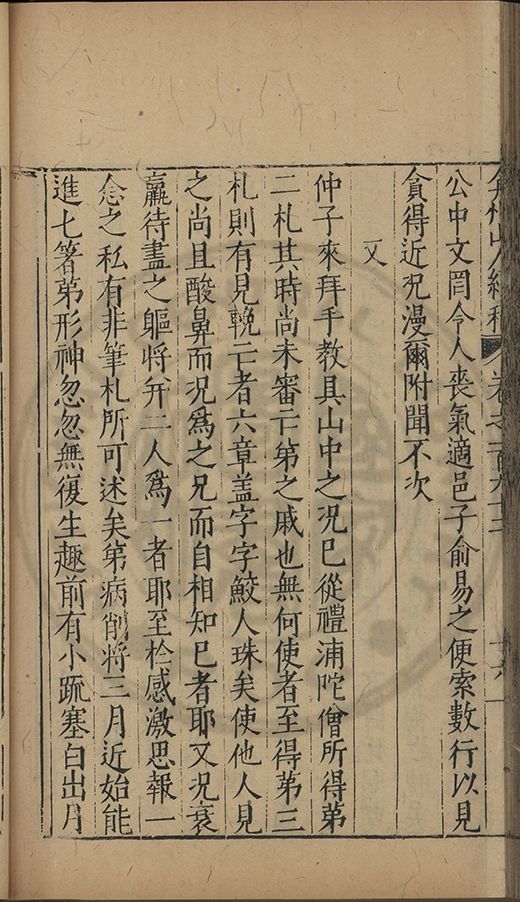 弇州山人續稿 卷之一百九十三 十六
公中文罔令人喪氣適邑子俞易之便索數行以見
貪得近況漫爾附聞不次
又
仲子來拜手教具山中之況已從禮浦陀僧所得第
二札其時尚未審亡弟之戚也無何使者至得第三
札則有見輓亡者六章盖字字鮫人珠矣使他人見
之尚且酸鼻而況為之兄而自相知已者耶又況衰
羸待盡之軀將并二人為一者耶至於感激思報一
念之私有非筆札所可述矣第病削將三月近始能
進七箸第形神忽忽無復生趣前有小疏塞白出月